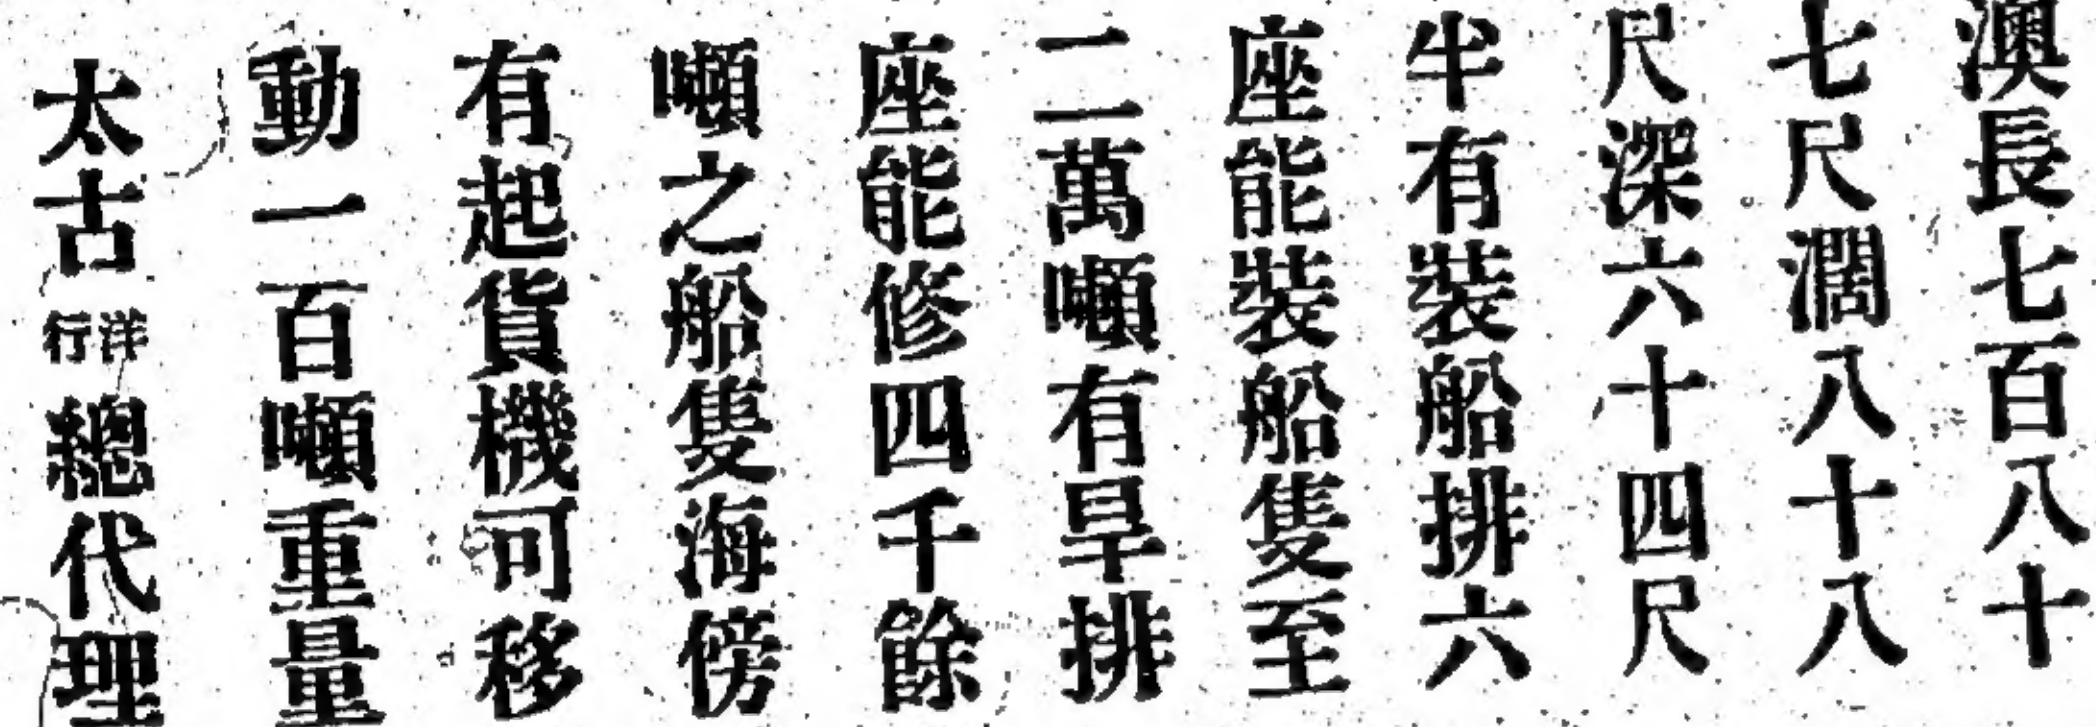 澳長七百八十
七尺濶八十八
尺深六十四尺
半有裝船排六
座能裝船隻至
二萬噸有旱排
座能修四千餘
噸之船隻海傍
有起貨機可移
動一百噸重量
太古洋行總代理